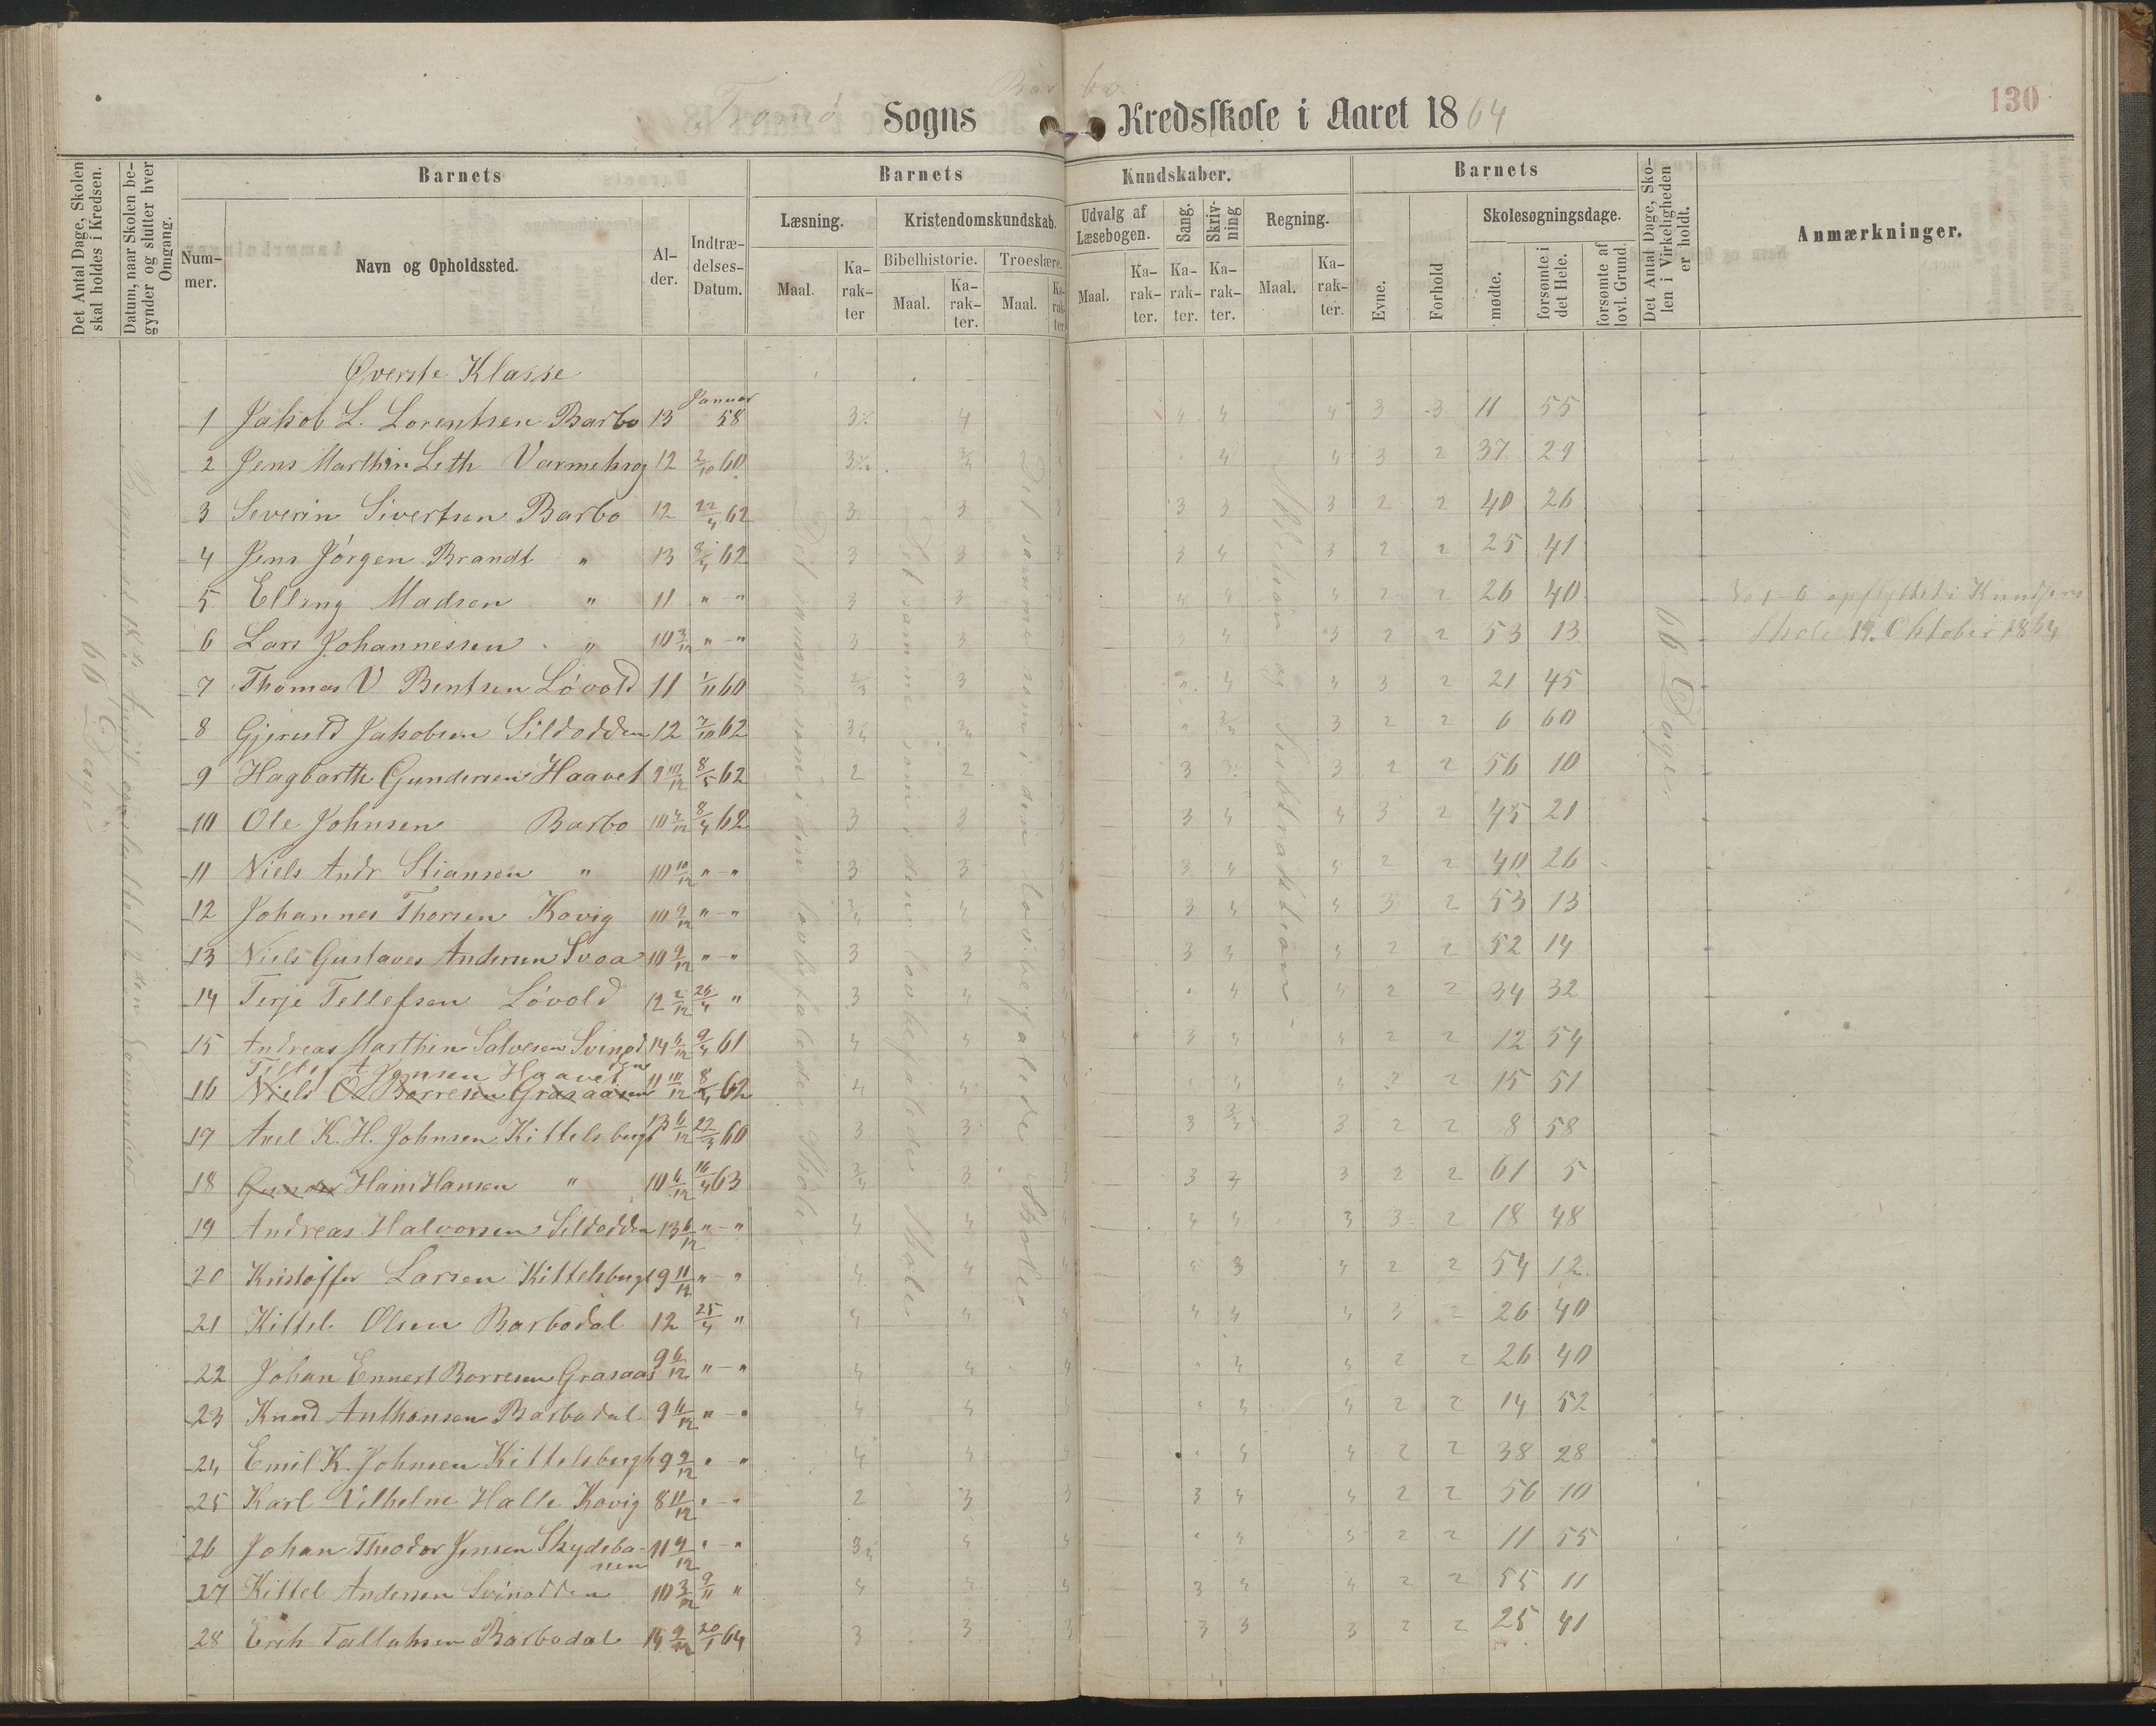 Tromø Sogns Barbo Kredsskole i Aaret 1864
130
Det Antal Dage, Skolen skal holdes i Kredsen.
Datum, naar Skolen begynder og slutter hver Omgang.
Barnets
Barnets
Kundskaber.
Barnets
Det Antal Dage, Skolen i Virkeligheden er holdt.
Anmærkninger.
Nummer.
Navn og Opholdssted.
Alder.
Indtrædelses-Datum.
Læsning.
Kristendomskundskab.
Udvalg af Læsebogen.
Sang.
Skrivning
Regning.
Evne.
Forhold
Skolesøgningsdage.
Bibelhistorie.
Troeslære.
Maal.
Karakter
Maal.
Karakter.
Maal.
Karakter
Maal.
Karakter.
Karakter.
Karakter.
Maal.
Karakter.
mødte.
forsømte i det Hele.
forsømte af lovl. Grund.
66 Dage
66 Dage
Det samme som i den lovbefalede Skole
Det samme som i den lovbefalede Skole
Det samme som i den lovbefalede Skole
Øverste Klasse
1 Jakob L. Lorentsen Barbo 13 Januar 58 4 4 4 4 3 3 11 55
2 Jens Marthin Leth Varmekrog 12 2/10 60 4 4 3 2 37 29
3 Severin Sivertsen Barbo 12 22/4 62 3 3 3 3 3 2 2 40 26
4 Jens Jörgen Brandt " 13 8/4 62 3 3 3 3 4 3 2 2 25 41
5 Elling Madsen " 11 " - " 3 3 4 4 4 2 2 26 40
6 Lars Johannessen " 10 3/12 " - " 3 3 4 3 2 2 53 13
No 1-6 opflyttet i
Skole 19. Oktober 1864
7 Thomas V Bentsen Lövold 11 1/11 60 3 " 4 4 3 2 21 45
8 Gjeruld Jakobsen Sildodden 12 7/10 62 " 3 2 2 6 60
9 Hagbarth Gundersen Haavet 9 10/12 8/5 62 2 2 2 3 3 3 2 2 56 10
10 Ole Johnsen Barbo 10 4/12 8/4 62 3 3 3 4 4 3 2 45 21
11 Niels Andr Stiansen " 10 10/12 " - " 3 3 3 3 4 4 2 2 40 26
12 Johannes Thorsen Kovig 10 9/12 " - " 4 3 4 4 3 2 53 13
13 Niels Gustaves Andersen Svoa 10 9/12 " - " 3 3 3 3 4 4 2 2 52 14
14 Terje Tellefsen Lövold 12 2/12 26/4 " 3 4 " 4 4 2 2 34 32
15 Andreas Marthin Salvesen Svinodden 14 6/12 9/4 61 4 4 4 3 4 4 2 2 12 54
Jensen Haavet
16 Niels O Borresen Grasaasen 11 10/12 8/4 62 4 4 " 4 4 2 2 15 51
17 Axel K. H. Johnsen Kittelsbugt 13 6/12 22/3 60 3 3 3 3 2 2 8 58
18 Gunder Hans Hansen " 10 6/12 16/4 63 3 3 3 4 3 2 2 61 5
19 Andreas Halvorsen Sildodden 13 6/12 " - " 4 4 4 4 4 3 3 2 18 48
20 Kristoffer Larsen Kittelsbugt 9 11/12 " - " 4 4 4 4 3 4 2 2 54 12
21 Kittel Olsen Barbodal 12 25/4 " 4 4 4 4 4 4 3 2 26 40
22 Johan Ennert Borresen Grasaas 9 6/12 " - " 4 4 4 " 4 4 2 2 26 40
23 Knud Anthonsen Barbodal 9 6/12 " - " 4 4 4 4 4 2 2 14 52
24 Emil K. Johnsen Kittelsbugt 9 2/12 " - " 4 4 " 4 4 2 2 38 28
25 Karl Vilhelm Halle Kovig 8 11/12 " - " 2 3 3 3 4 4 2 2 56 10
26 Johan Theodor Jensen Skydebanen 11 9/12 " - " 4 4 " 4 4 2 2 11 55
27 Kittel Andersen Svinodden 10 3/12 9/11 " 4 4 4 3 4 4 2 2 55 11
28 Erik Tallaksen Barbodal 14 9/12 20/1 64 3 3 3 3 3 3 2 2 25 41